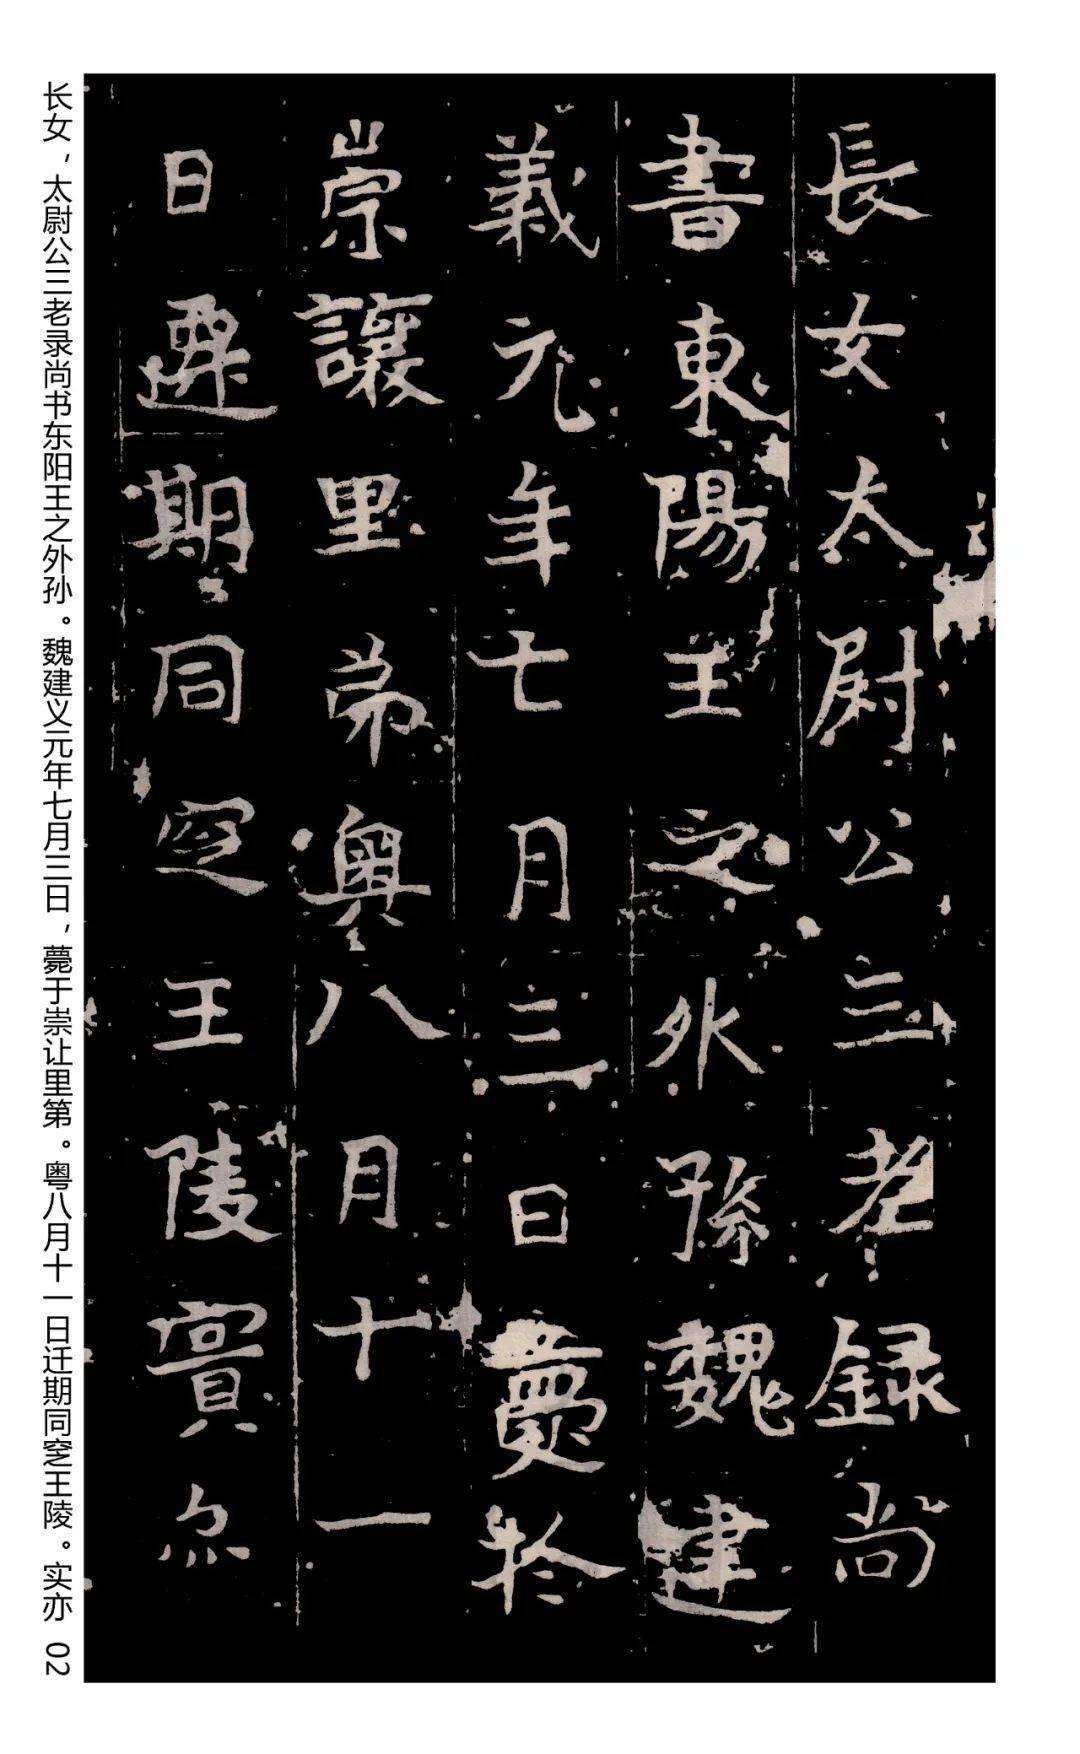 長女太尉公三老録尚
書東陽王之外孫魏建
義元年七月三日薨於
崇讓里苐粵八月十一
日遷期同窆王陵實亦
长女，太尉公三老录尚书东阳王之外孙。魏建义元年七月三日，薨于崇让里第。粤八月十一日迁期同窆王陵。实亦 02